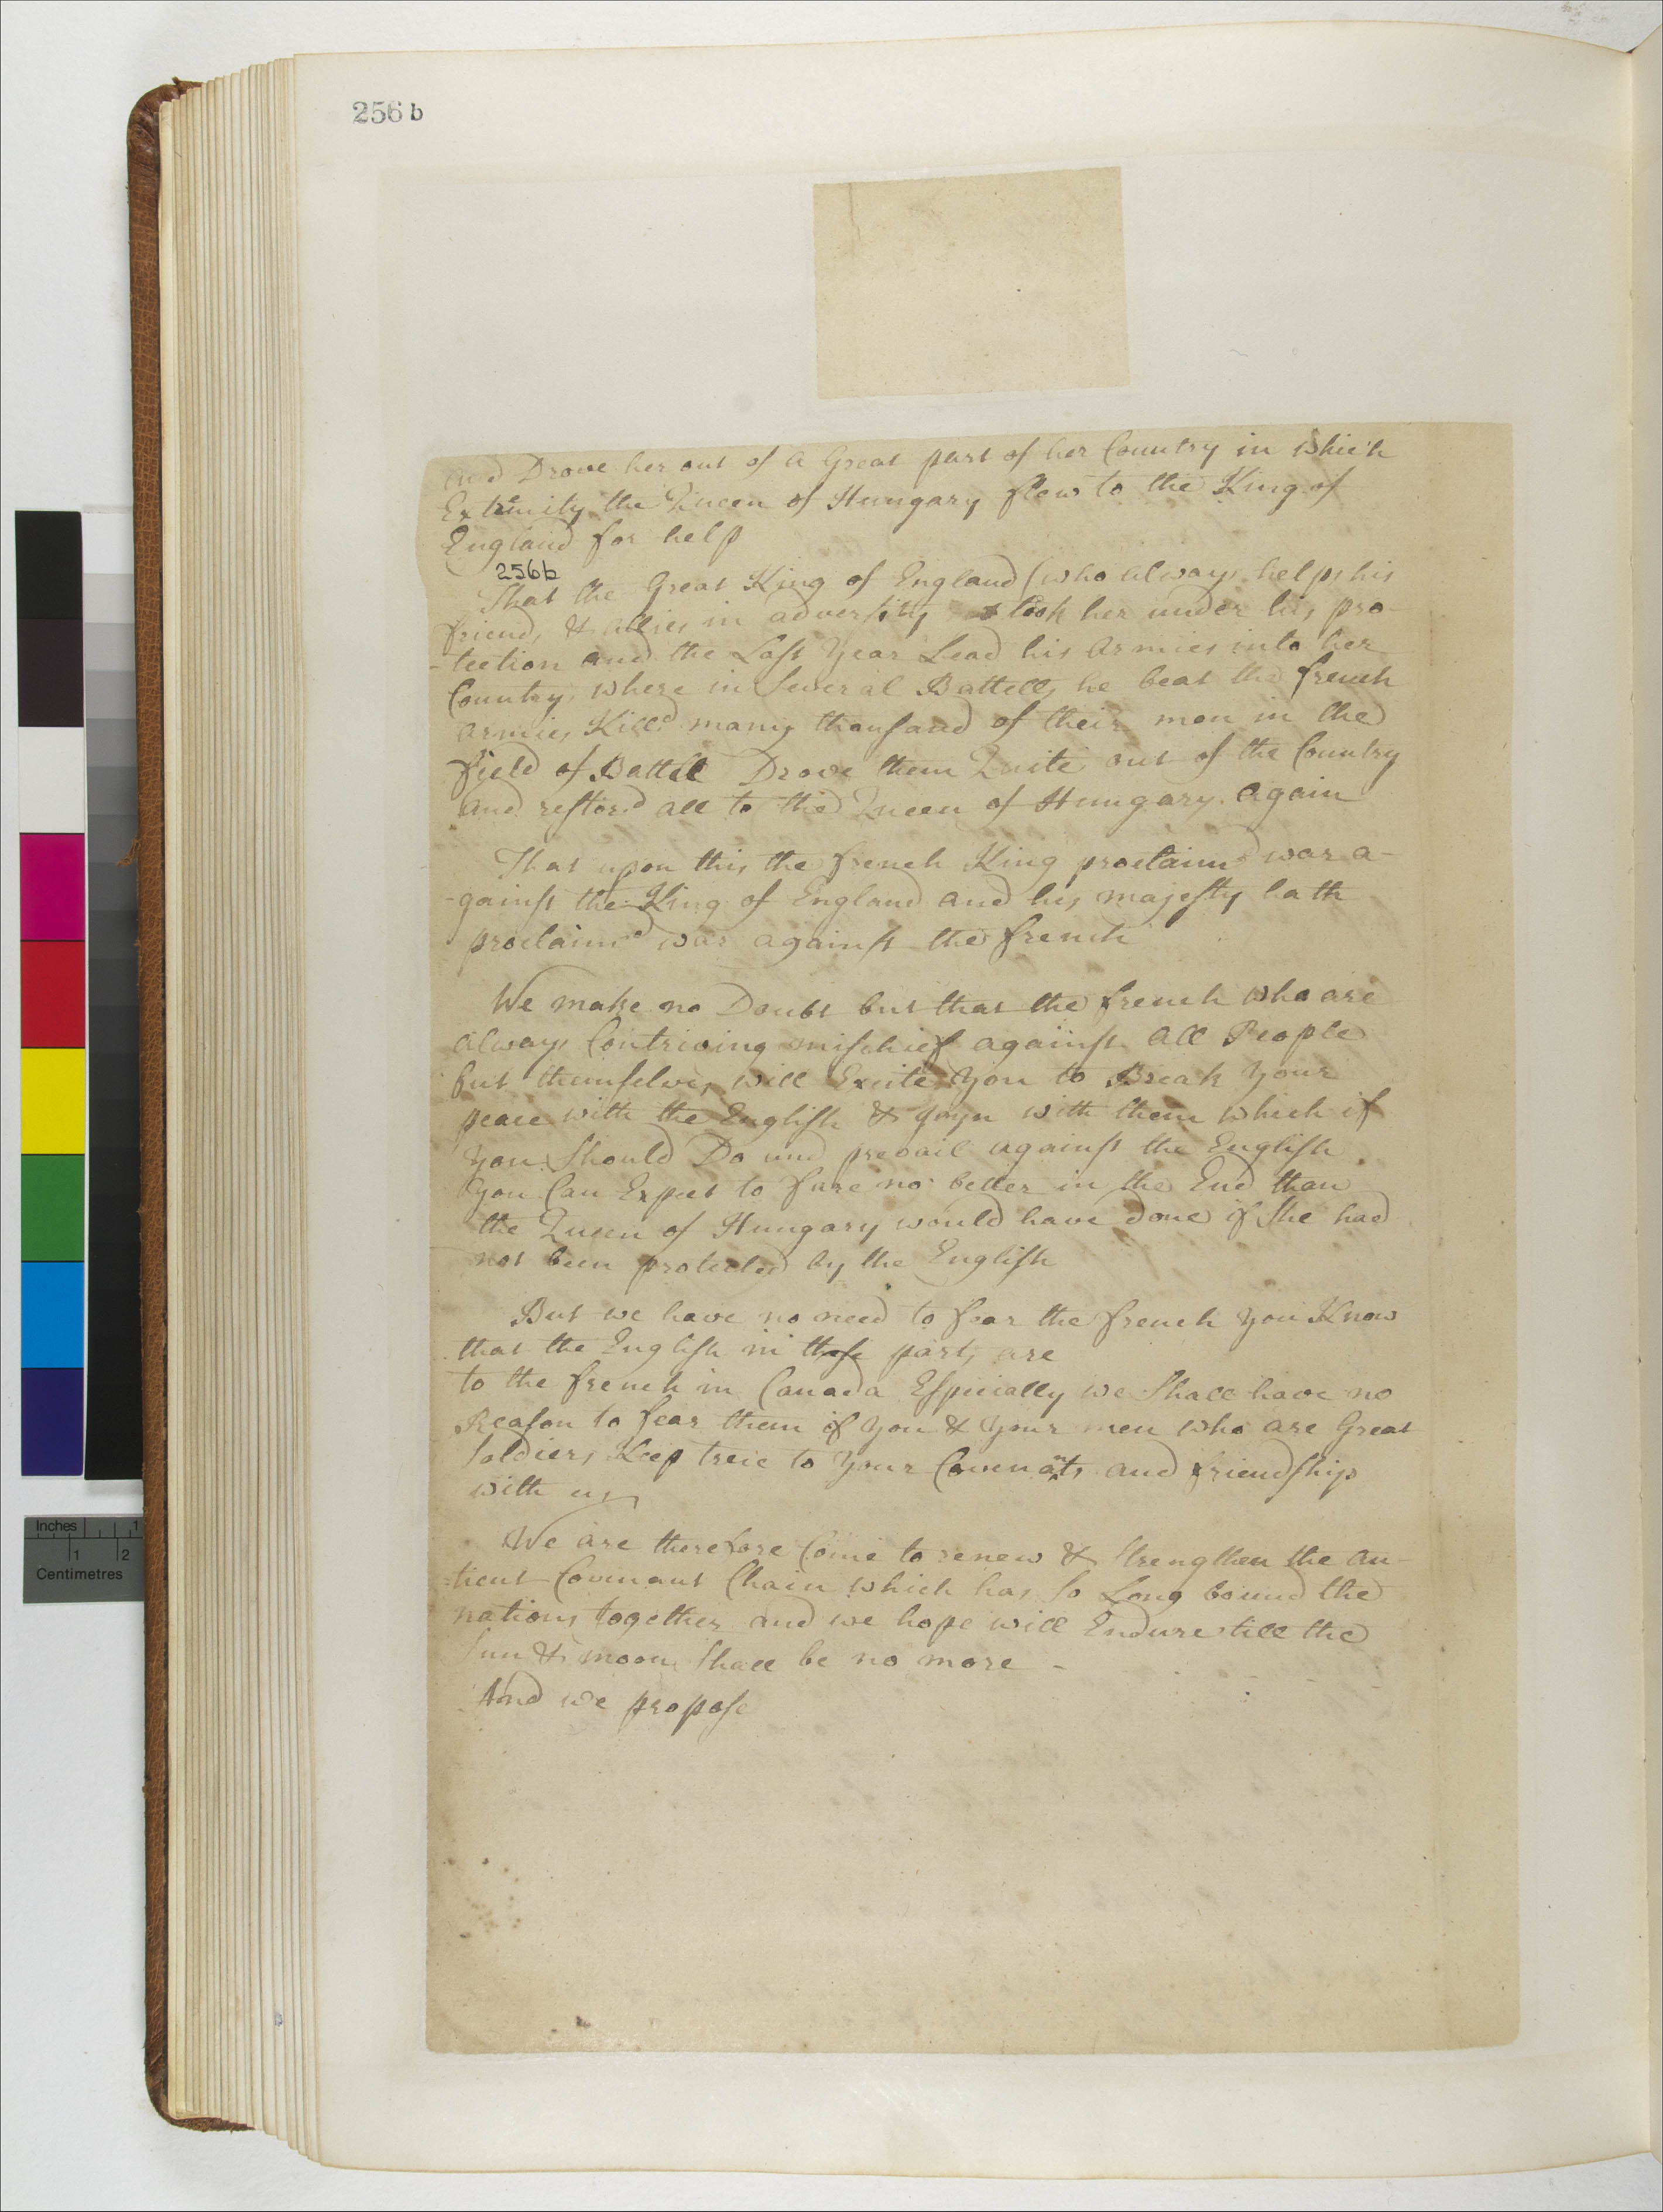 256 b
and Drove her out of a Great part of her Country in which
Extrimity the Queen of Hungary flew to the King of
England for help
256b
That the Great King of England (who always helps his
friends & allies in adversity took her under his pro-
-tection and the Last Year Lead his armies into her
Country where in Several Battells he beat the french
armies Killd many thousand of their men in the
field of Battle Drove them Quite out of the Country
and restord all to the Queen of Hungary again
That upon this the french King proclaimd war a-
-gainst the King of England and his majesty hath
proclaimd war against the french
We make no Doubt but that the french who are
always Contriving mischief against All People
but themselves will Excite You to Break Your
peace with the English & joyn with them which if
you Should Do and prevail against the English
you Can Expect to fare no better in the End than
the Queen of Hungary would have done if She had
not been protected by the English
But we have no need to fear the french you Know
that the English in these parts are
to the french in Canada Especially we Shall have no
Reason to fear them if you & your men who are Great
Soldiers Keep treie to Your Covenants and friendship
with us
We are therefore Come to renew & Strengthen the an-
-tient Covenant Chain which has So Long bound the
nations together and we hope will Endure till the
Sun & moon Shall be no more -
And we propose
Inches 1
1 2
Centimetres